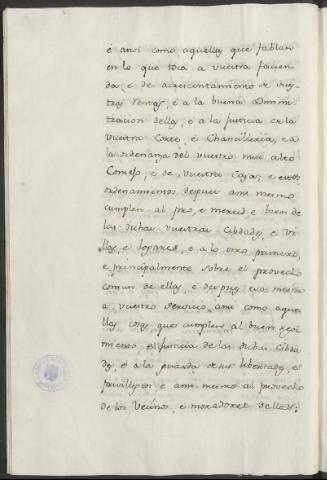 é ansi como aquellas que fablan
en lo que toca a vuestra facien-
da é de acrecentamiento de vues-
tras rentas é a la buena adminis-
tracion della, é a la justicia en la
vuestra Corte, é Chancilleria, é a
la ordenanza del vuestro mui alto
Consejo, é de vuestra Casa; é
ordenamientos despues ansi mesmo
cumplen al pro, é merced é bien de
las dichas vuestras Cibdades, é vi-
llas, é logares, é a lo otro primero,
é principalmente sobre el provecho
comun de ellas, é despues eso mesmo
a vuestro servicio, ansi como aque-
llas cosas que cumplen al buen regi-
miento, é justicia de las dichas Cibda-
des, é a la guarda de sus libertades, é
privillejos é ansi mesmo al provecho
de los vecinos, é moradores dellas: